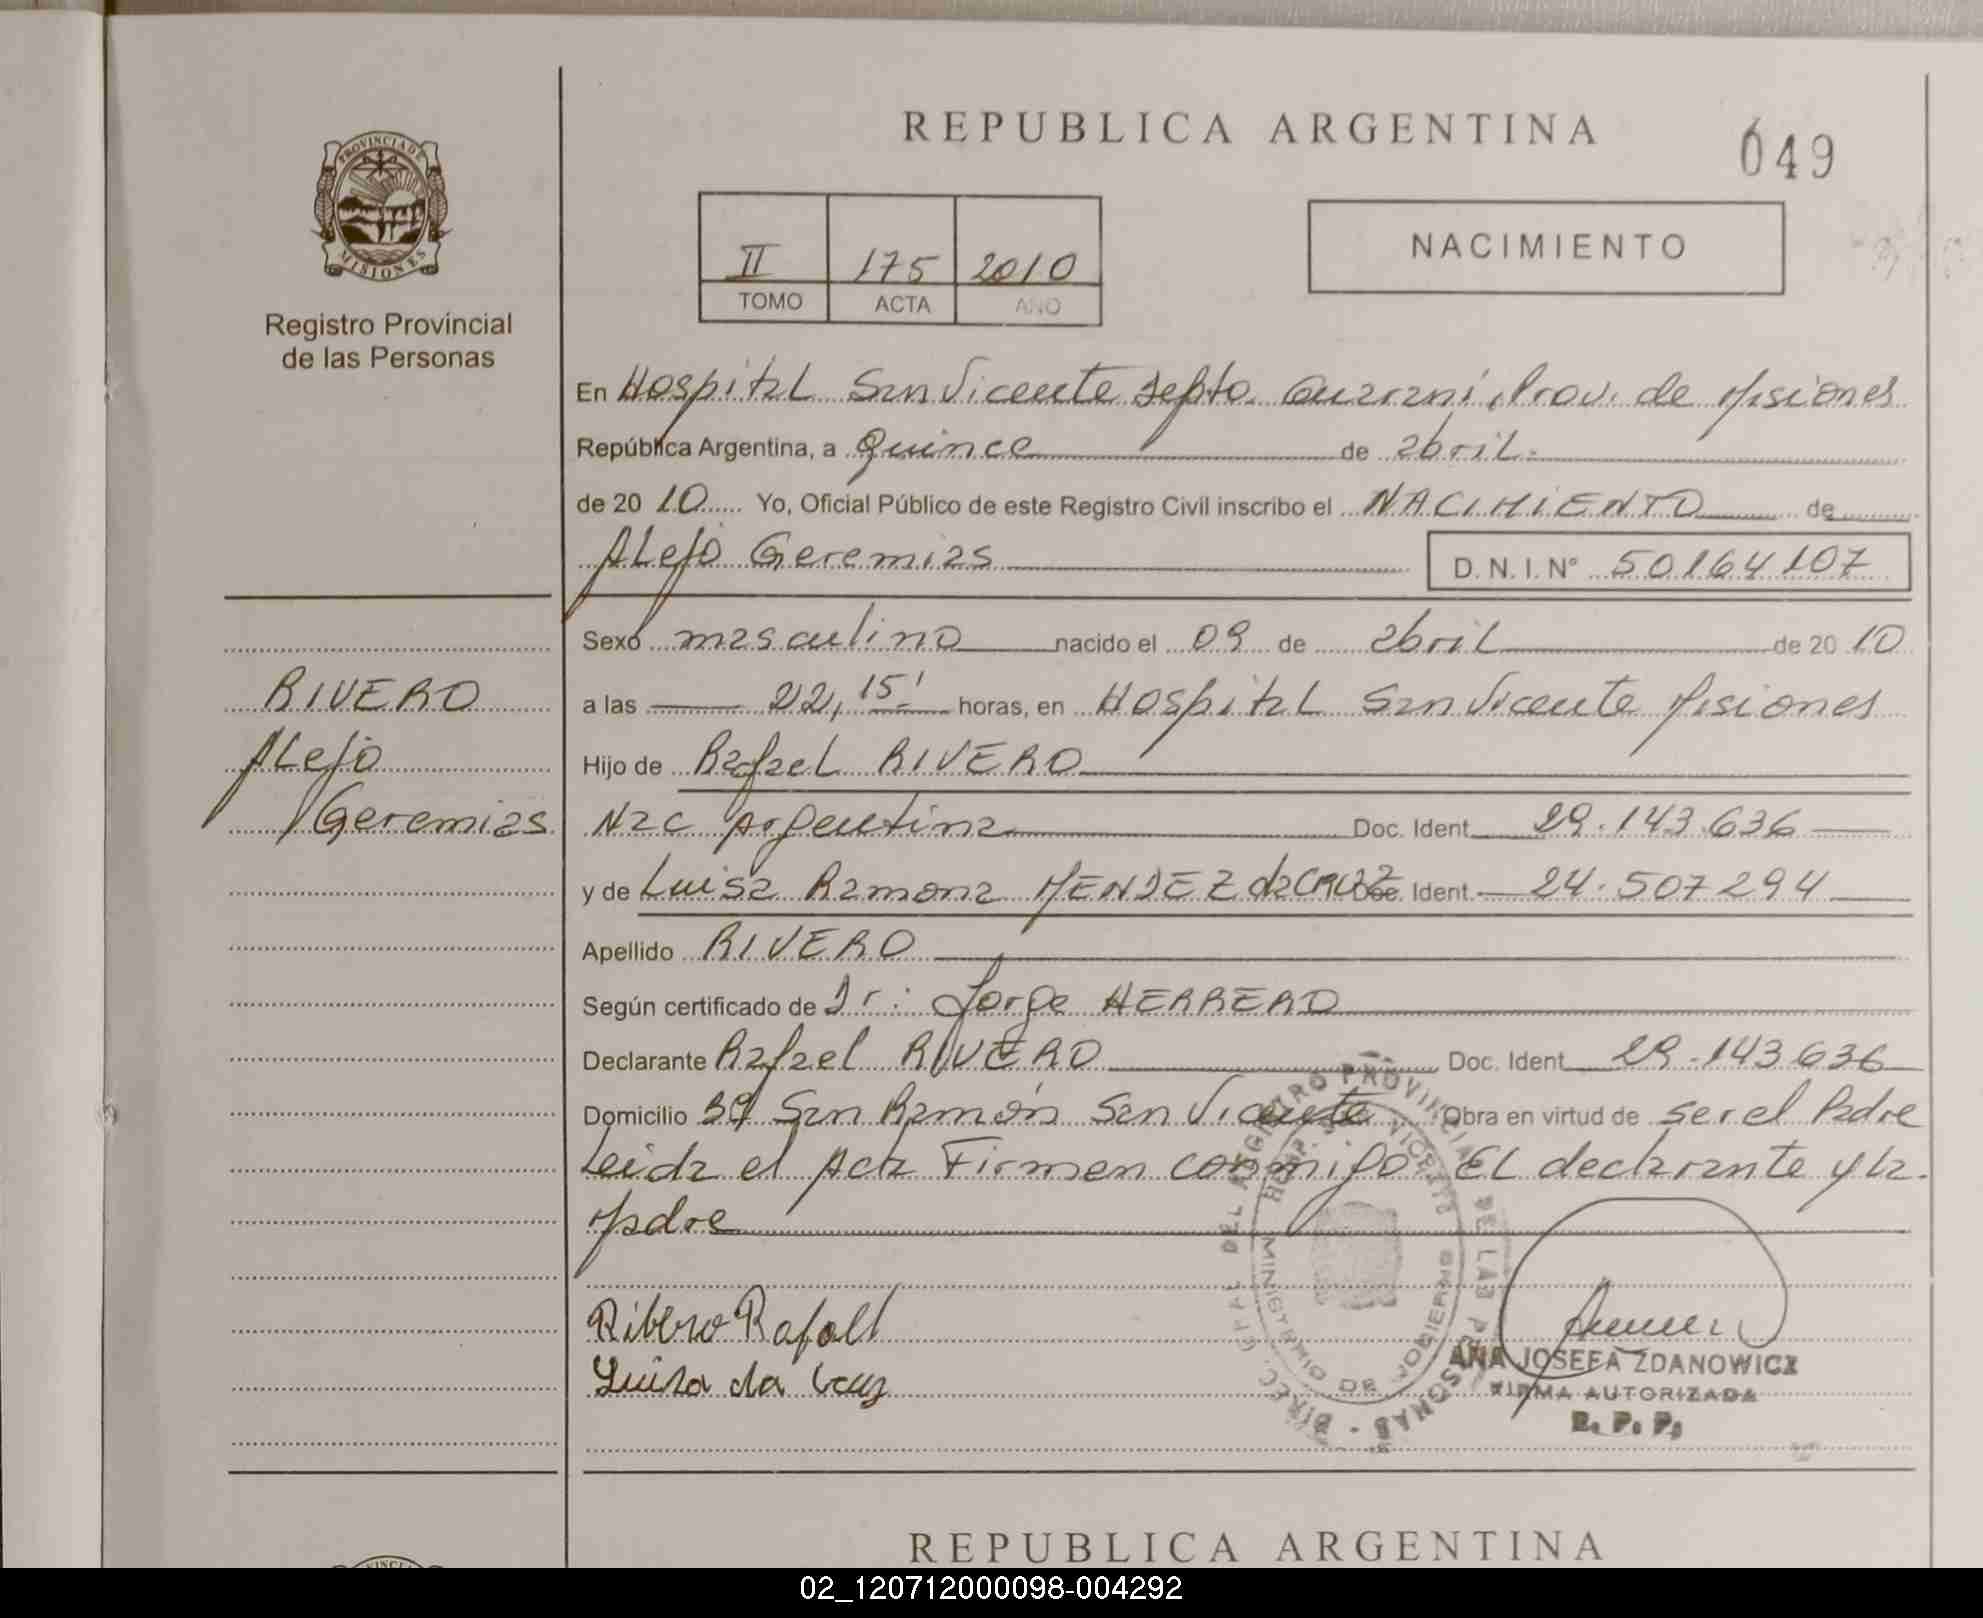 REPUBLICA ARGENTINA
049
PROVINCIA DE
MISIONES
Registro Provincial
de las Personas
II 175 2010
TOMO ACTA AÑO
NACIMIENTO
En Hospital San Vicente Depto. Guarani, Prov. de Misiones
República Argentina, a Quince de abril.
de 20 10 Yo, Oficial Público de este Registro Civil inscribo el NACIMIENTO de
Alejo Geremias D.N.I. N° 50164107
Sexo masculino nacido el 09 de abril de 20 10
a las 22,15' horas, en Hospital San Vicente Misiones
Hijo de Rafael RIVERO
Nac Argentina Doc. Ident. 29.143.636
y de Luisa Ramona MENDEZ da CRUZ Doc. Ident. 24.507294
Apellido RIVERO
Según certificado de Dr: Jorge HERRERO
Declarante Rafael RIVERO Doc. Ident. 29.143636
Domicilio Bº San Ramón San Vicente Obra en virtud de ser el Padre
Leida el Acta Firmen conmigo El declarante y la
Madre
RIVERO
Alejo
Geremias
Ribero Rafael
Luisa da Cruz
DIREC. GRAL. DEL REGISTRO PROVINCIAL DE LAS PERSONAS
MINISTERIO DE GOBIERNO
HOSP. VICENTE
ANA JOSEFA ZDANOWICZ
FIRMA AUTORIZADA
R. P. P.
REPUBLICA ARGENTINA
02_120712000098-004292